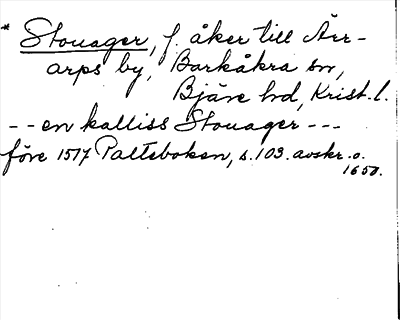 * Stouager, f. åker till Ärr-
arps by, Barkåkra sn,
Bjäre hd, Krist. l.
-- en kalliss Stouager ---
före 1517 Paltsboken, s. 103. avskr. o.
1650.